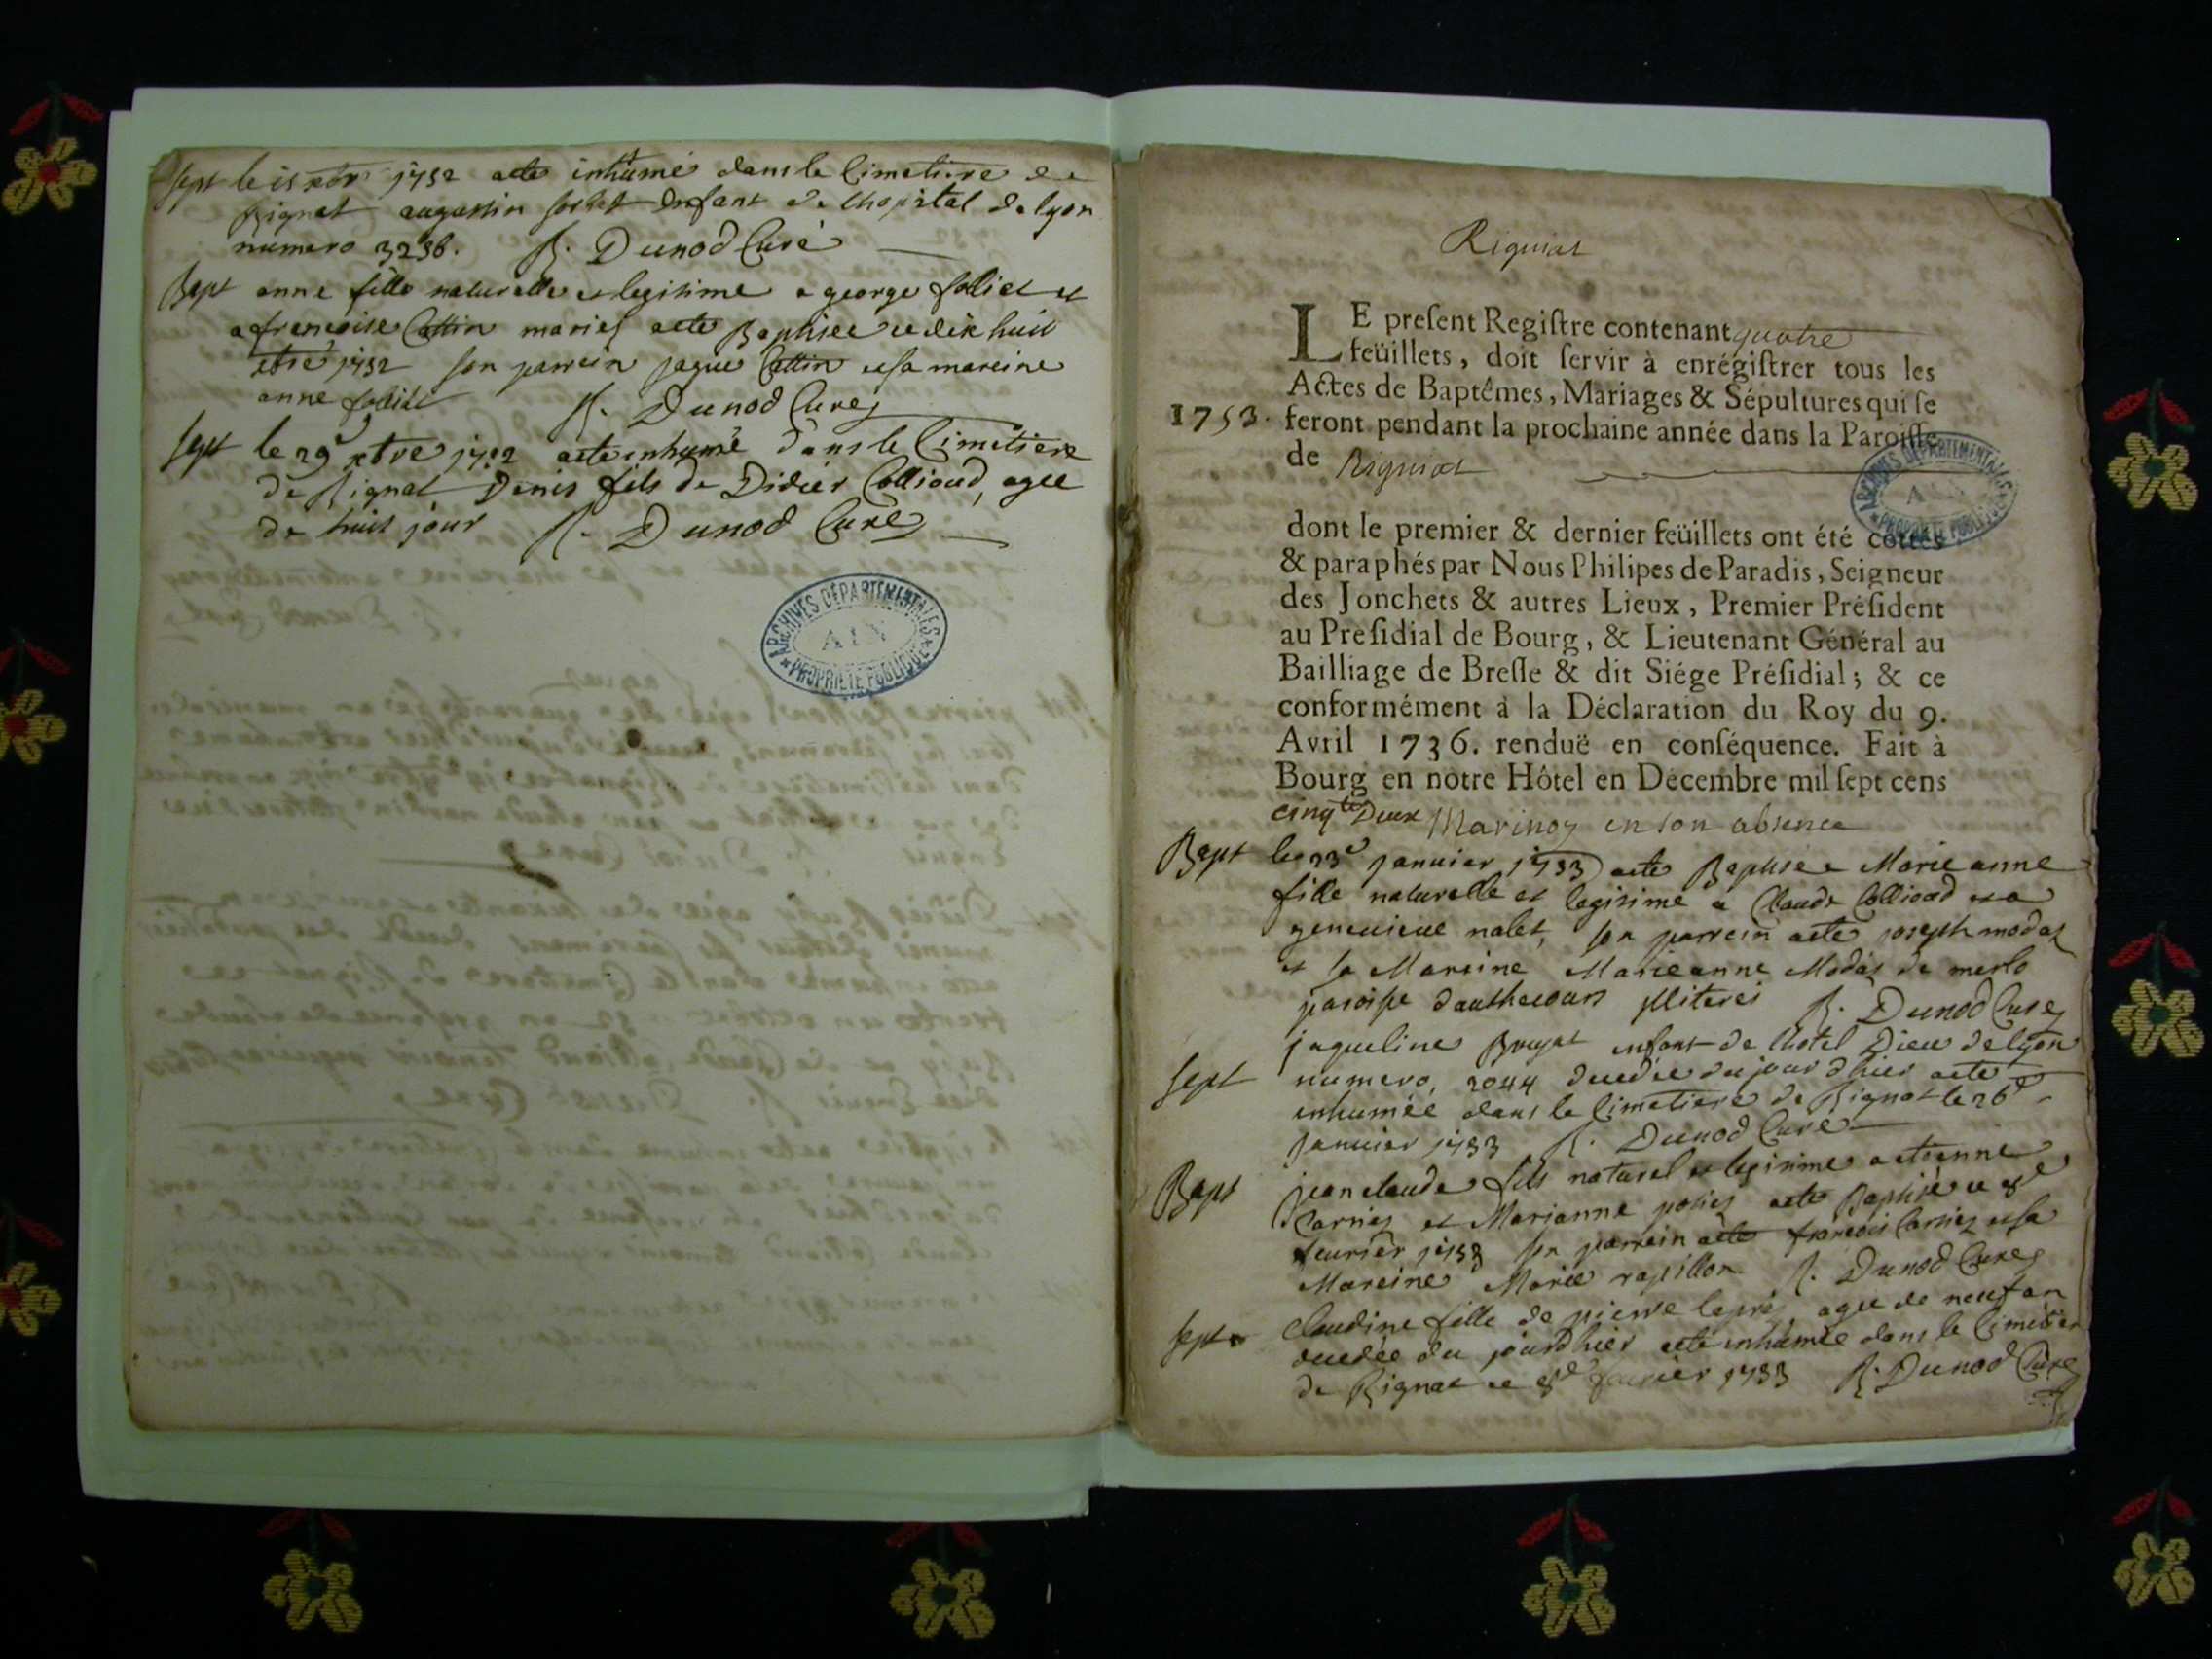 Sept le 15 xbr 1752 a été inhumé dans le Cimetiere de
Rignat augustin enfant de lhopital de lyon
numero 3256. R. Dunod Curé
Bapt anne fille naturelle et legitime a george folliet et
a francoise Cattin mariés a été Baptisee ce dix huit
xbre 1752 son parrein jaque Cattin et sa mareine
anne folliet R. Dunod Curé
Sept le 29e xbre 1752 a été inhumé dans le Cimetiere
de Rignat Denis fils de Didier Collioud, agee
de huit jour R. Dunod Curé
ARCHIVES DÉPARTEMENTALES
AIN
PROPRIÉTÉ PUBLIQUE
Rigniat
LE preſent Regiſtre contenant quatre
feüillets, doit ſervir à enrégiſtrer tous les
Actes de Baptêmes, Mariages & Sépultures qui ſe
1753. feront pendant la prochaine année dans la Paroiſſe
de Rigniat
ARCHIVES DÉPARTEMENTALES
AIN
PROPRIÉTÉ PUBLIQUE
dont le premier & dernier feüillets ont été cottés
& paraphés par Nous Philipes de Paradis, Seigneur
des Jonchets & autres Lieux, Premier Préſident
au Preſidial de Bourg, & Lieutenant Général au
Bailliage de Breſſe & dit Siége Préſidial; & ce
conformément à la Déclaration du Roy du 9.
Avril 1736. renduë en conſéquence. Fait à
Bourg en notre Hôtel en Décembre mil ſept cens
cinqte Deux en son absence
Bapt le 23e janvier 1753 a été Baptisée Marie anne
fille naturelle et legitime a Claude Collioud et a
genevieve nalet, son parrein a été joseph modas
et sa Mareine Marieanne Modas de merlo
paroisse dauthecour R. Dunod Curé
jaqueline Bruyat enfant de lhotel Dieu de lyon
Sept numero, 2044 decedée du jour dhier a été
inhumée dans le Cimetiere de Rignat le 26e
Janvier 1753 R. Dunod Curé
Bapt jean claude fils naturel et legitime a etienne
Carrier et Marianne a été Baptisé ce 8e
fevrier 1753 son parrein a été francois Carrier et sa
Mareine Marie rapillon R. Dunod Curé
Sept Claudine fille de pierre agee de neuf an
decedée du jour dhier a été inhumée dans le Cimetier
de Rignat ce 8e fevrier 1753 R. Dunod Curé